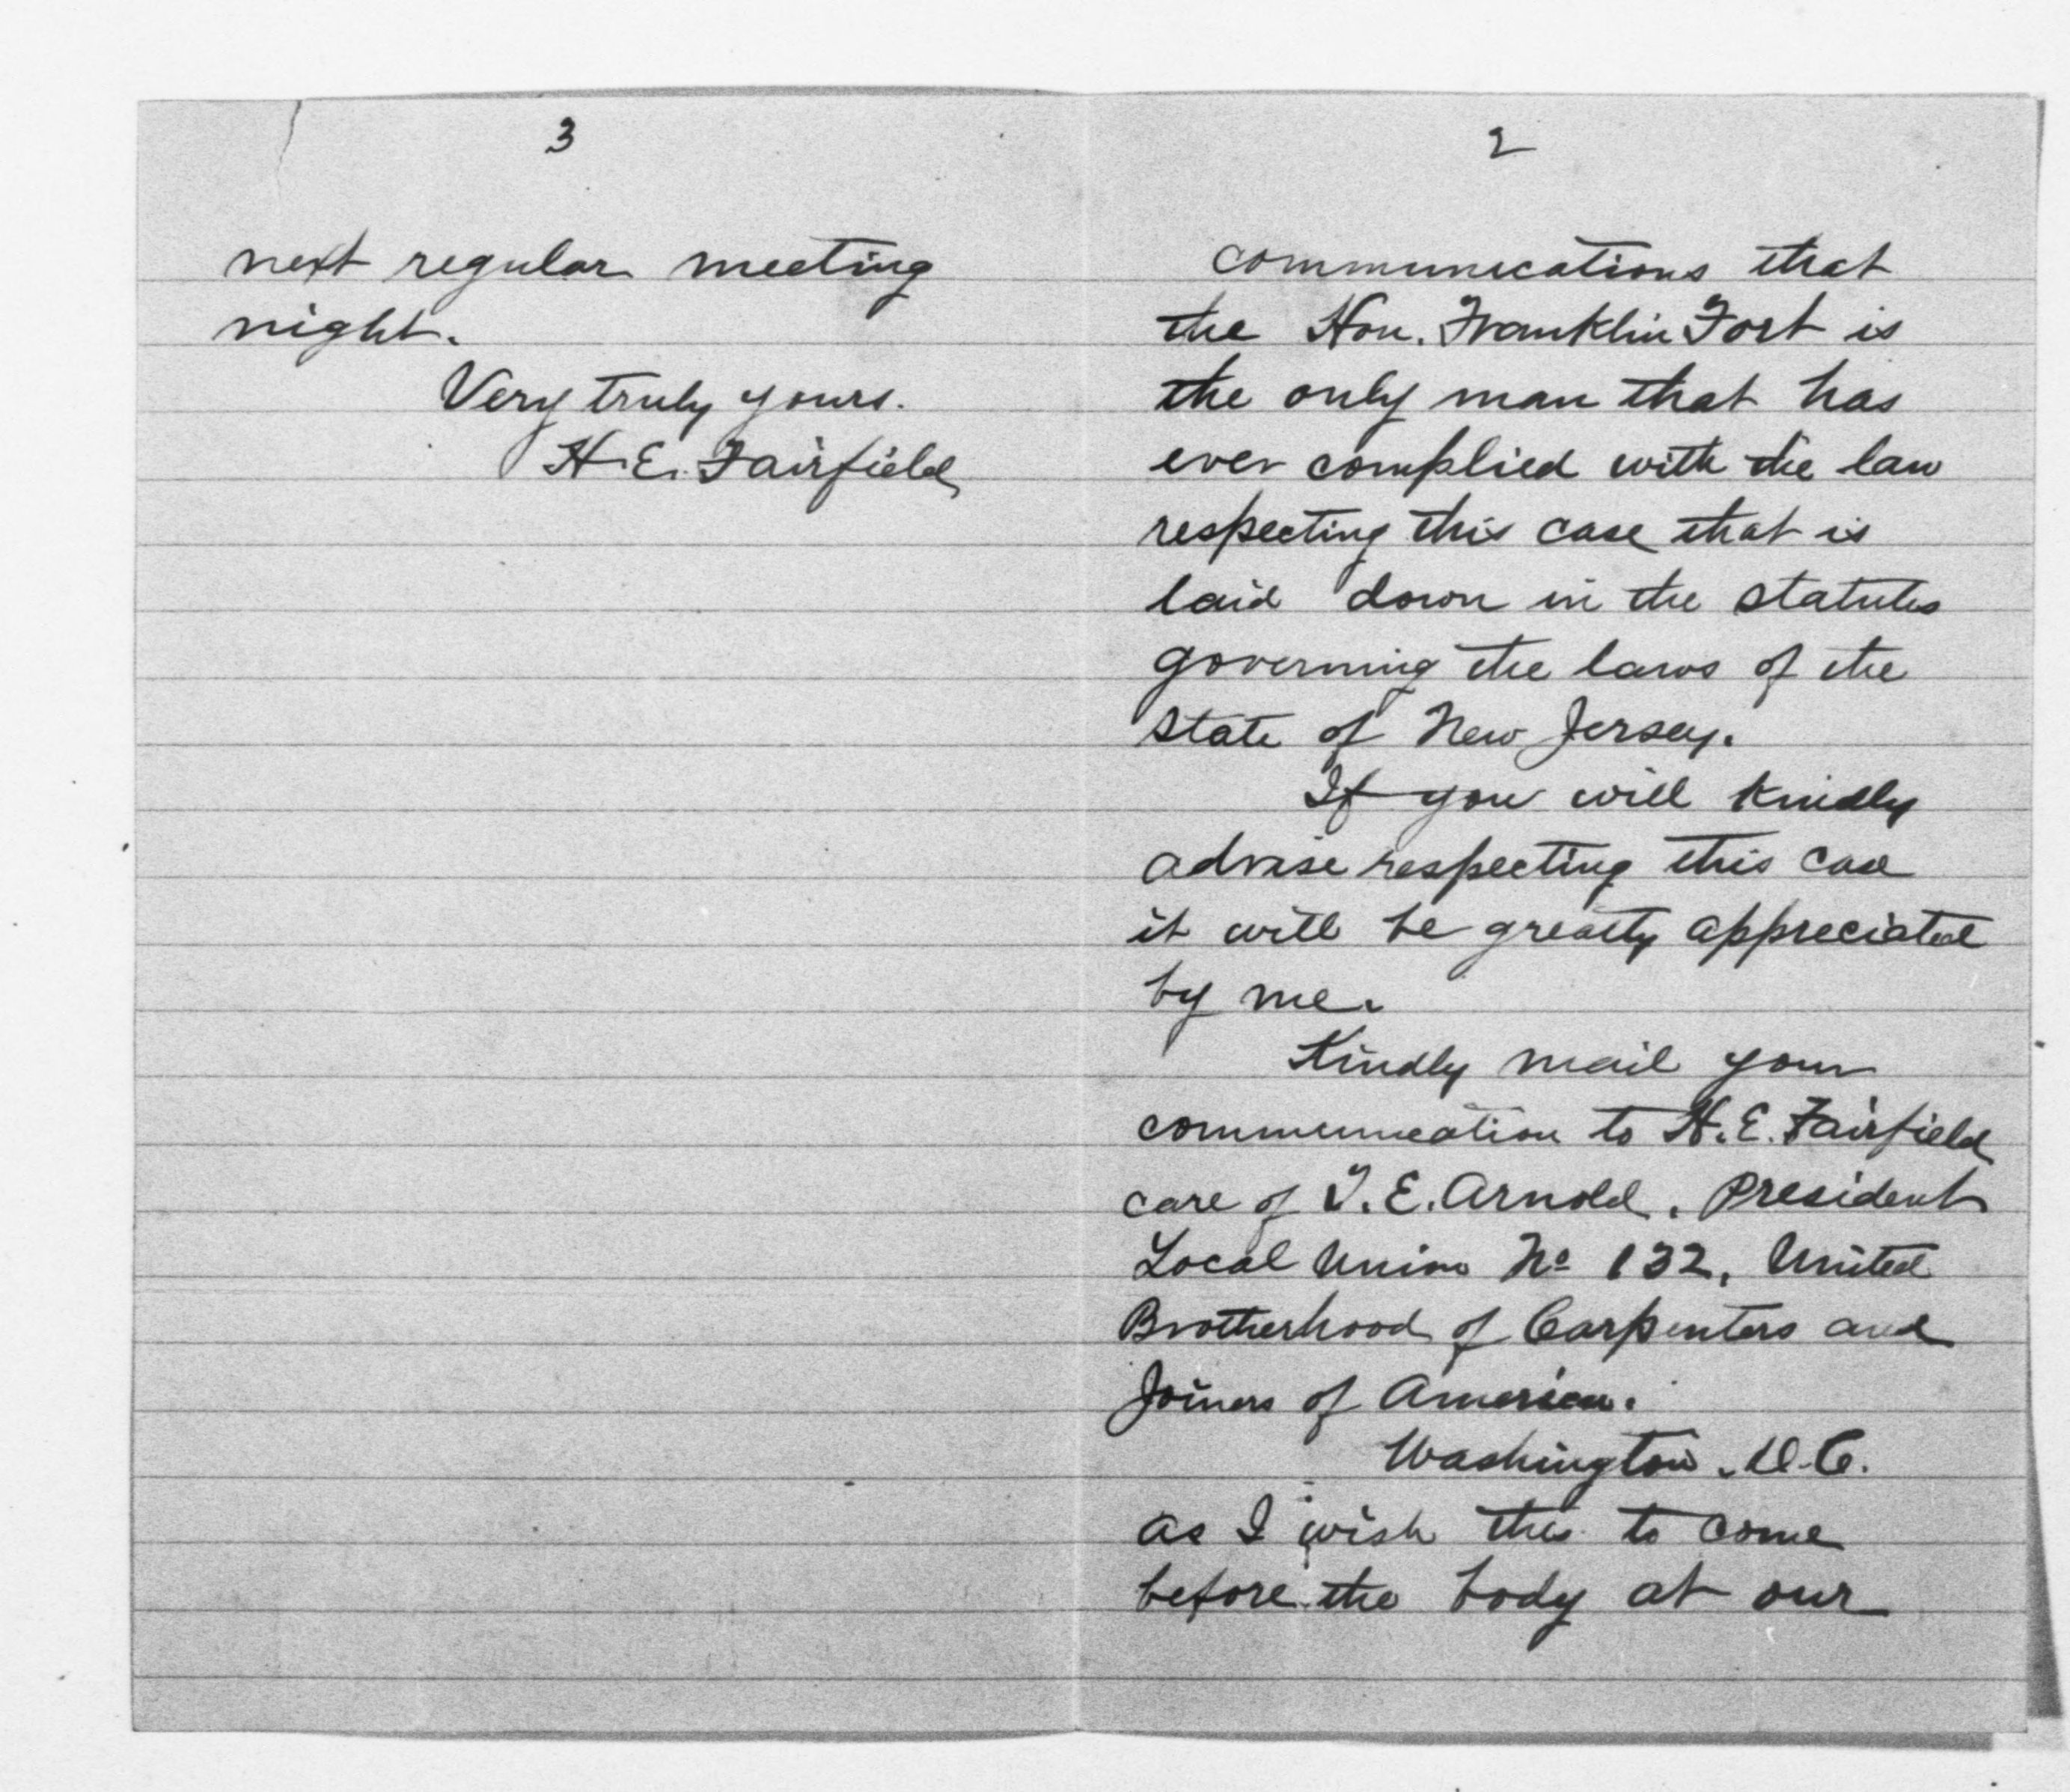 2
communications that
the Hon. Franklin Fort is
the only man that has
ever complied with the law
respecting this case that is
laid down in the statutes
governing the laws of the
State of New Jersey.
If you will kindly
advise respecting this case
it will be greatly appreciated
by me.
Kindly mail your
communication to H. E. Fairfield
care of T. E. Arnold, President
Local Union No 132, United
Brotherhood of Carpenters and
Joiners of America.
Washington, D.C.
as I wish this to come
before the body at our
3
next regular meeting
night.
Very truly yours.
H. E. Fairfield